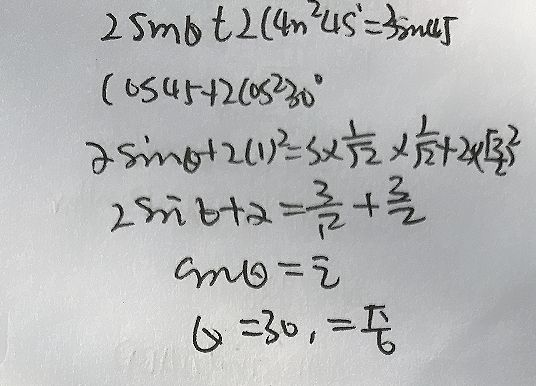 2 sinθ + 2(4n²45° = 3 sin45
Cos45 + 2Cos²30°
2 sinθ + 2(1)² = 3×1/√2 × 1/√2 + 2×(√3/2)²
2 sin θ + 2 = 3/2 + 3/2
sinθ = 1/2
θ = 30, = π/6